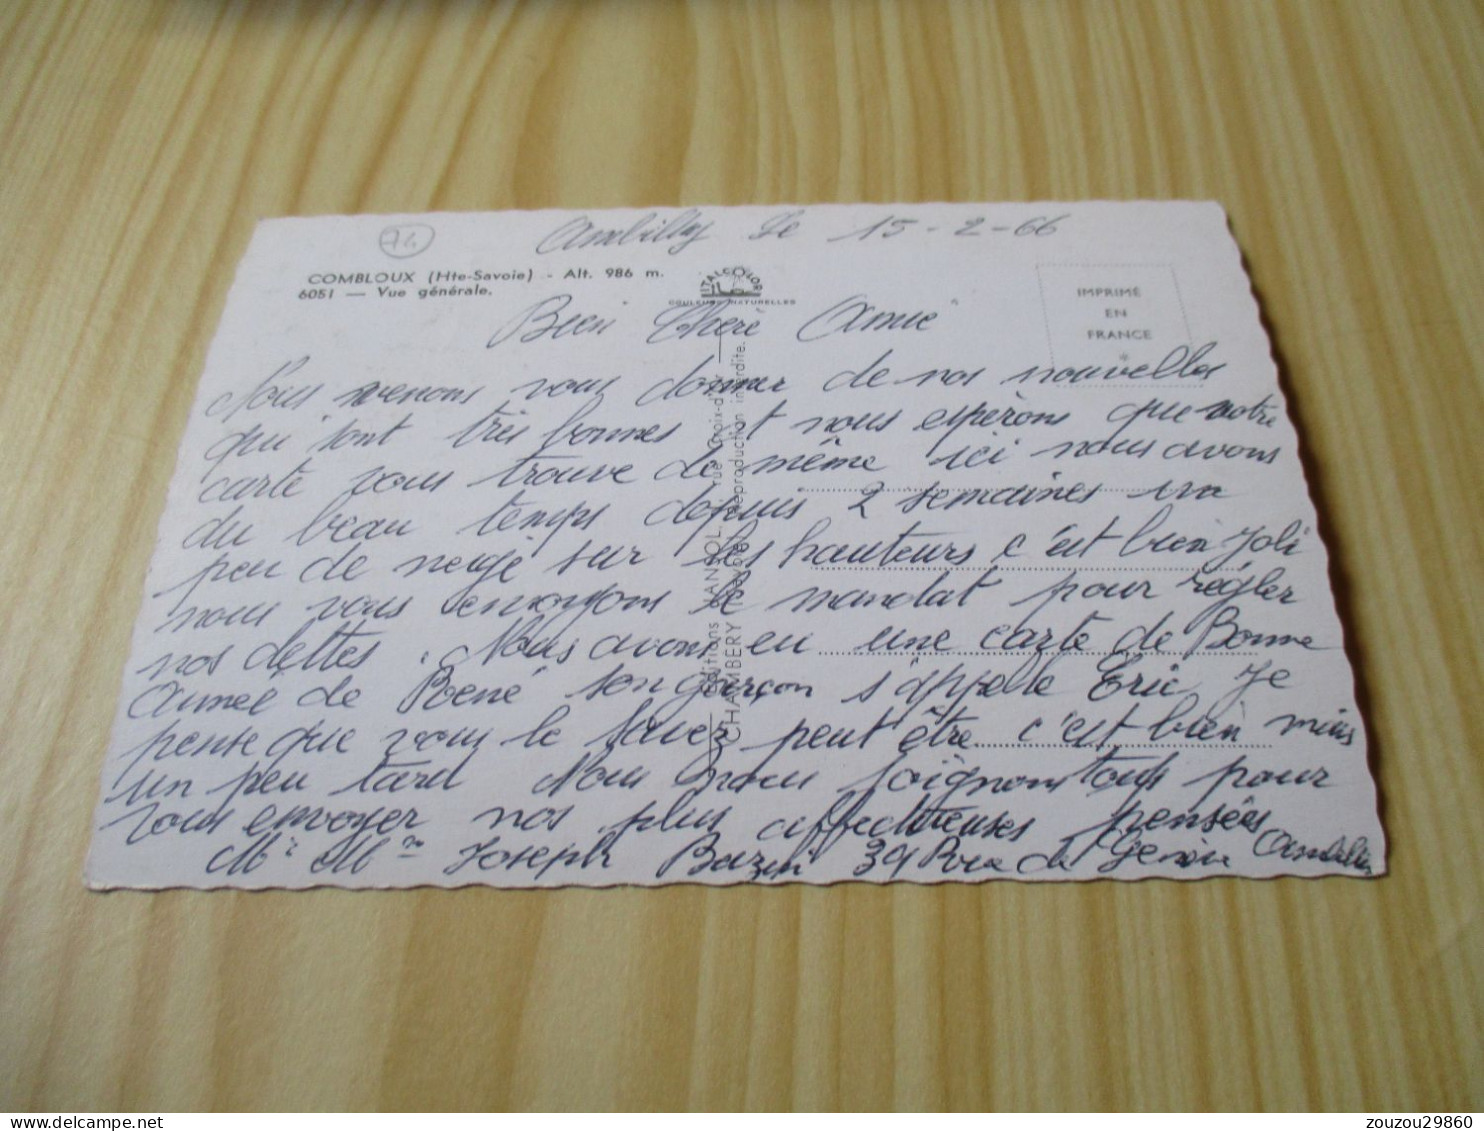 74
Ambilly Le 15-2-66
COMBLOUX (Hte-Savoie) - Alt. 986 m.
6051 — Vue générale.
ITALCOLOR
COULEURS NATURELLES
IMPRIMÉ
EN
FRANCE
*
Bien Chere Amie
Nous venons vous donner de nos nouvelles
qui sont très bonnes et nous espérons que notre
carte vous trouve de même ici nous avons
du beau temps depuis 2 semaines un
peu de neige sur les hauteurs c'est bien joli
nous vous envoyons le mandat pour régler
nos dettes. Nous avons eu une carte de Bonne
Année de René son garçon s'appelle Eric Je
pense que vous le savez peut être c'est bien mieux
un peu tard Nous nous joignons tous pour
vous envoyer nos plus affectueuses pensées
Mr Mme Joseph Bazin 39 Rue de Genève Ambilly
Editions JANSOL, rue Croix-d'Or
CHAMBERY (Savoie) Reproduction interdite.
zouzou29860